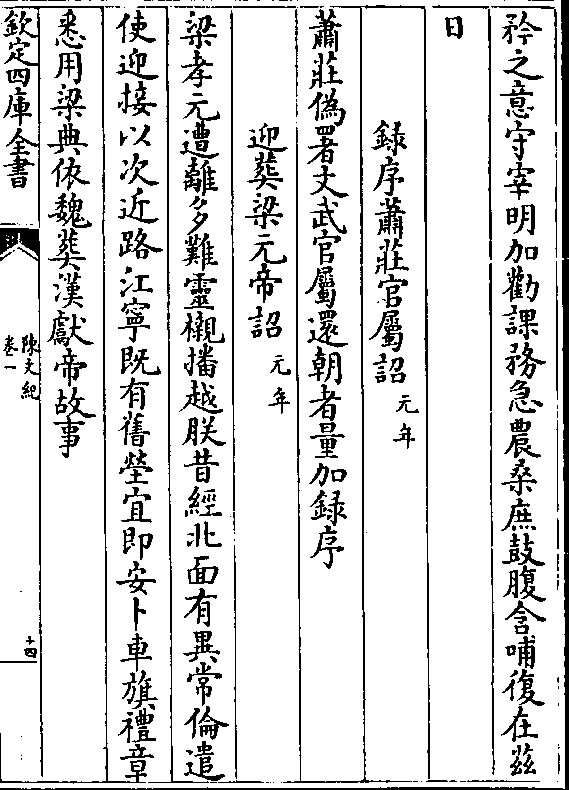 矜之意守宰明加勸課務急農桑庶鼓腹含哺復在茲
日
録序蕭莊官屬詔元年
蕭莊偽署文武官屬還朝者量加録序
迎葬梁元帝詔元年
梁孝元遭離多難靈櫬播越朕昔經北面有異常倫遣
使迎接以次近路江寧既有舊塋宜即安卜車旗禮章
悉用梁典依魏葬漢獻帝故事
欽定四庫全書
陳文紀
卷一
十四